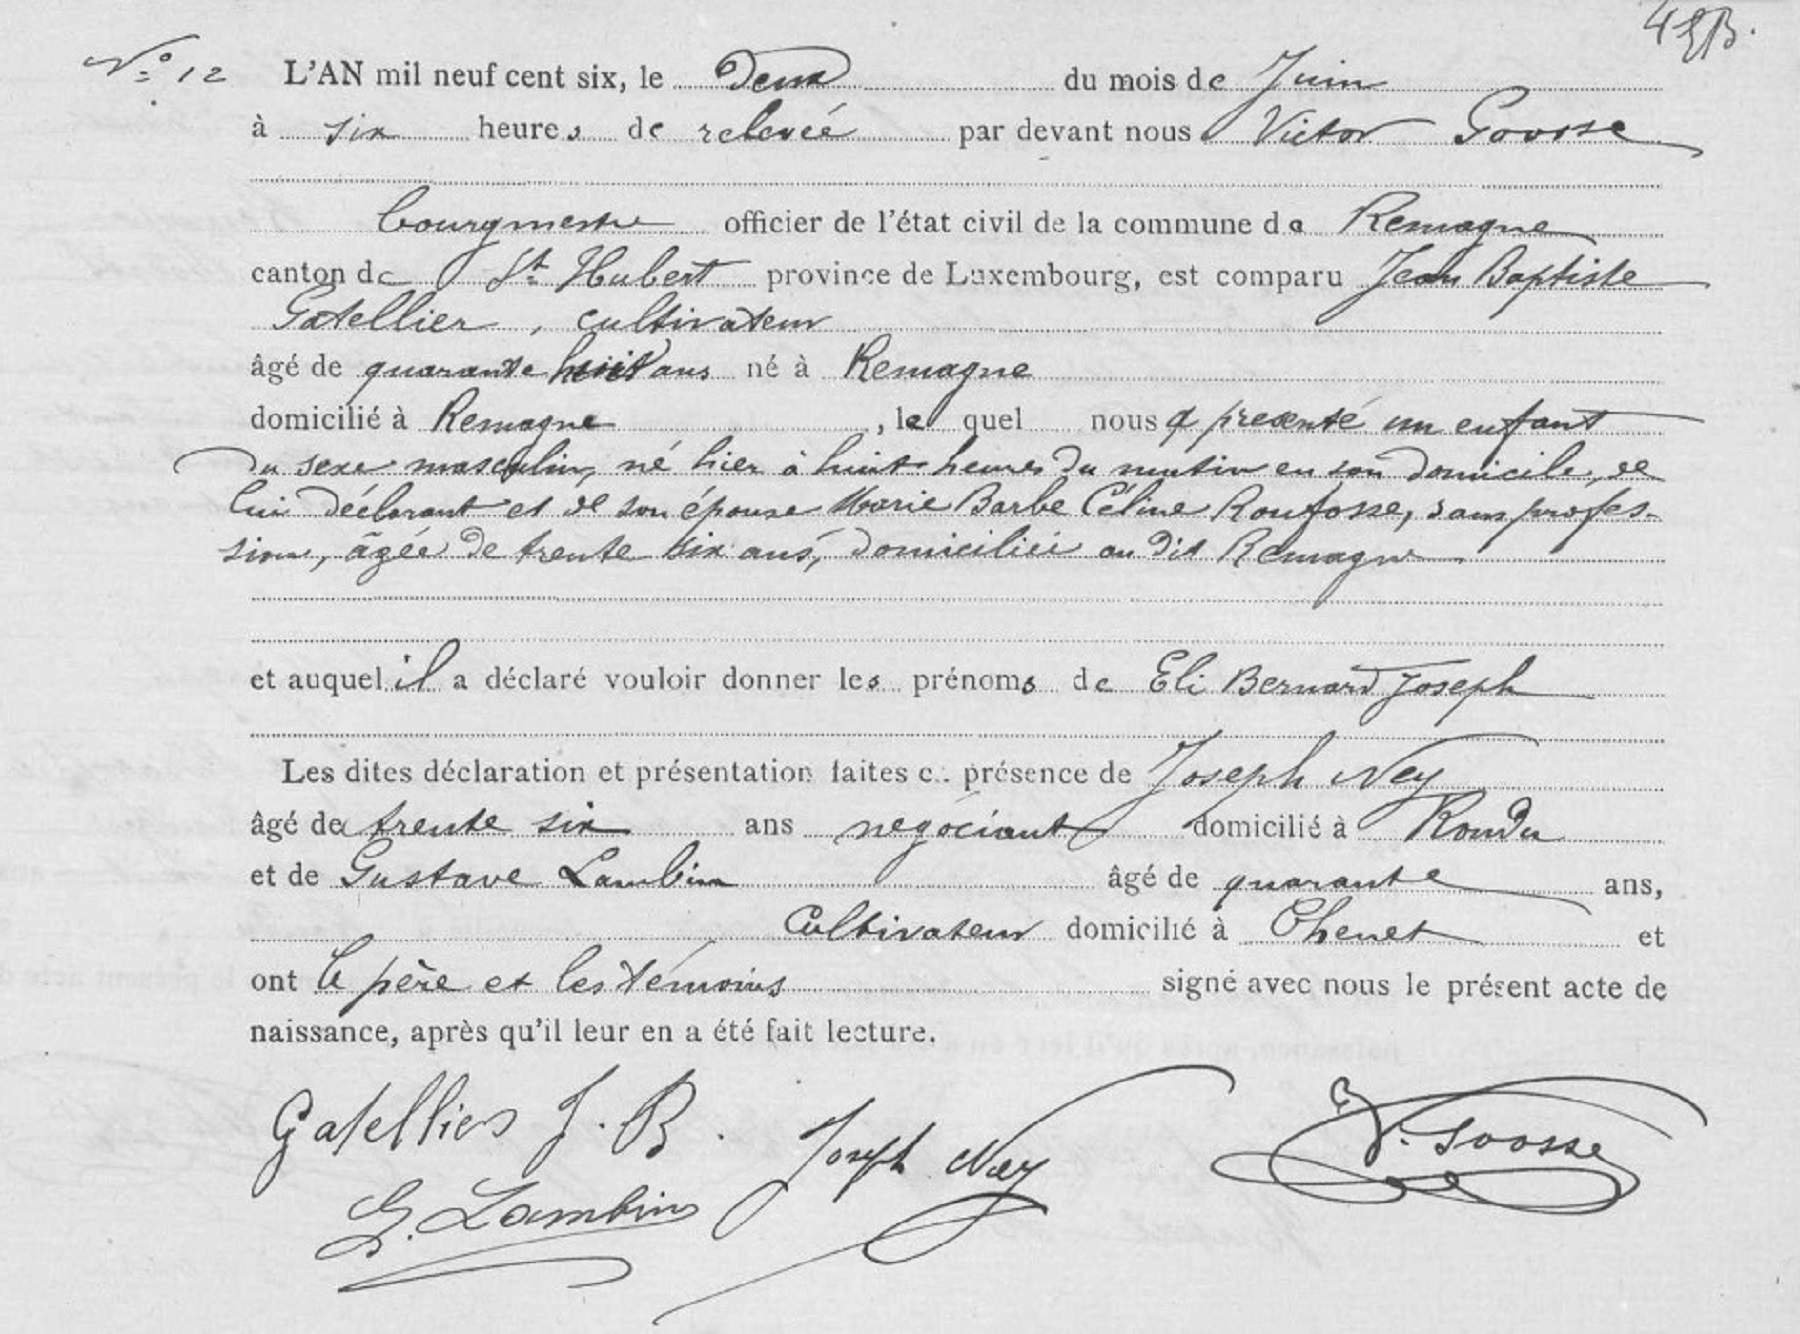 N° 12 L'AN mil neuf cent six, le Deux du mois de Juin
à six heures de relevée par devant nous Victor Goosse
bourgmestre officier de l'état civil de la commune de Remagne
canton de St Hubert province de Luxembourg, est comparu Jean Baptiste
Gatellier, cultivateur
âgé de quarante huit ans né à Remagne
domicilié à Remagne, lequel nous a presenté un enfant
du sexe masculin, né hier à huit heures du matin en son domicile, de
lui déclarant et de son épouse Marie Barbe Céline Roufosse, sans profes-
sion, âgée de trente six ans, domiciliée au dit Remagne
et auquel il a déclaré vouloir donner les prénoms de Eli Bernard Joseph
Les dites déclaration et présentation faites en présence de Joseph Ney
âgé de trente six ans négociant domicilié à Rondu
et de Gustave Lambin âgé de quarante ans,
Cultivateur domicilié à Chenet et
ont le père et les témoins signé avec nous le présent acte de
naissance, après qu'il leur en a été fait lecture.
Gatellier J. B. Joseph Ney V. Goosse
G. Lambin